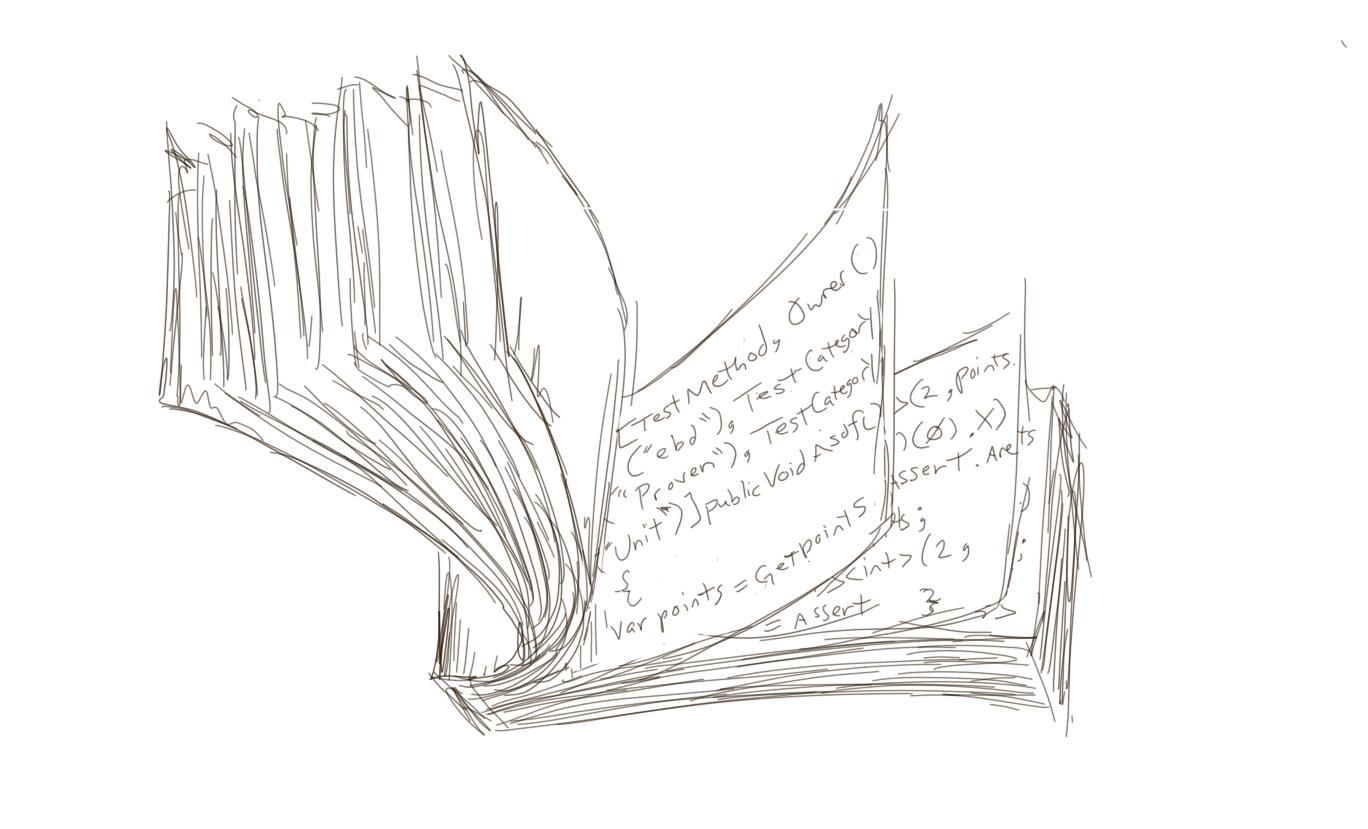 [TestMethod, Owner()
("ebd"), TestCategory
("Proven"), TestCategory
("Unit")]publicVoid Asdf()
{
Var points = Getpoints
>(2, points.
)(0).X)
Assert. Are
ts
;
)
;
><int>(2,
= Assert
}